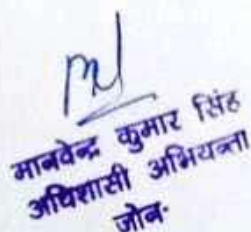 मानवेन्द्र कुमार सिंह
अधिशासी अभियन्ता
जोन-